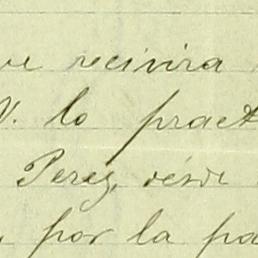 ue recivira
V. lo pract
Perez, desde
, por la pa